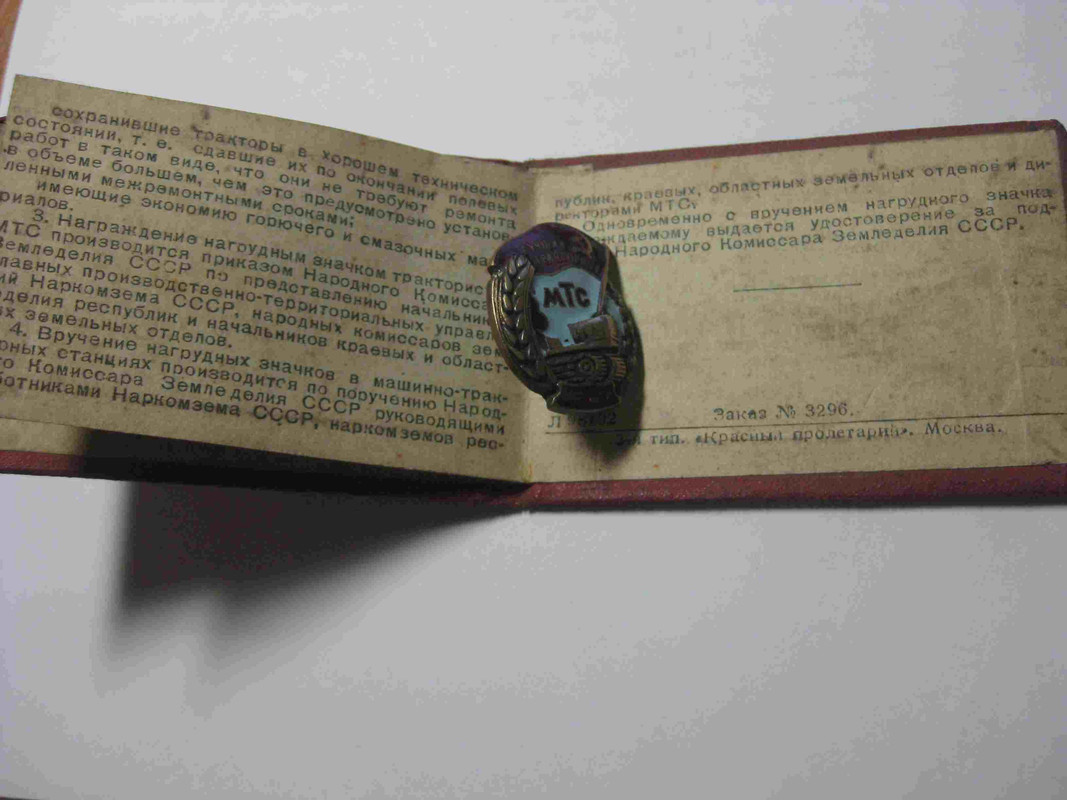 сохранившие тракторы в хорошем техническом
состоянии, т. е. сдавшие их по окончании полевых
работ в таком виде, что они не требуют ремонта
в объеме большем, чем это предусмотрено установ
ленными межремонтными сроками;
имеющие экономию горючего и смазочных ма
риалов.
3. Награждение нагрудным значком тракторис
МТС производится приказом Народного Комисса
Земледелия СССР по представлению начальник
лавных производственно-территориальных управл
ий Наркомзема СССР, народных комиссаров зем
делия республик и начальников краевых и област-
х земельных отделов.
4. Вручение нагрудных значков в машинно-трак-
рных станциях производится по поручению Народ-
го Комиссара Земледелия СССР руководящими
ботниками Наркомзема СССР, наркомземов рес-
публик, краевых, областных земельных отделов и ди-
ректорами МТС.
Одновременно с вручением нагрудного значка
ждаемому выдается удостоверение за под-
Народного Комиссара Земледелия СССР.
МТС
Заказ № 3296.
тип. «Красный пролетарий». Москва.